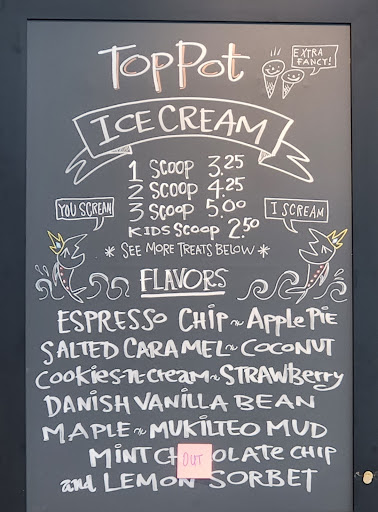 TOPPOT
EXTRA
FANCY!
ICE CREAM
1 SCOOP 3.25
2 SCOOP 4.25
3 SCOOP 5.00
KIDS SCOOP 2.50
YOU SCREAM
I SCREAM
* SEE MORE TREATS BELOW *
FLAVORS
ESPRESSO CHIP ~ APPLE PIE
SALTED CARAMEL ~ COCONUT
COOKIES-N-CREAM ~ STRAWBERRY
DANISH VANILLA BEAN
MAPLE ~ MUKILTEO MUD
MINT CH OLATE CHIP
OUT
and LEMON SORBET